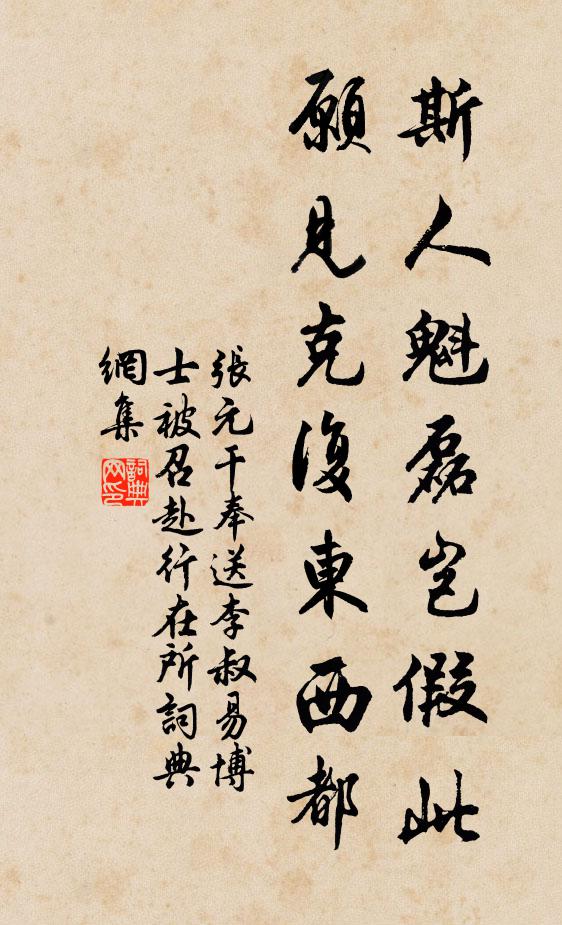 斯人魁磊豈假此
願見克復東西都
張元干奉送李叔易博
士被召赴行在所詞典
網集
詞典网印